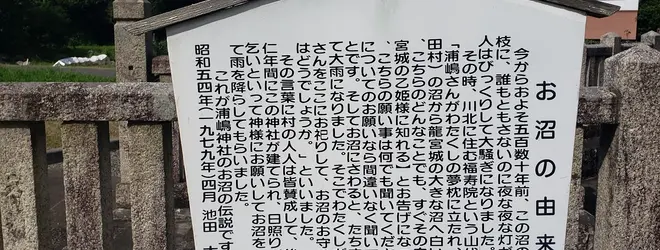 お沼の由来
今からおよそ五百数十年前、この沼の
枝に、誰もともさないのに夜な夜な灯
人はびっくりして大騒ぎになりました
その時、川北に住む福寿院という山
「浦嶋さんがわたくしの夢枕に立たれ
、こちらのどんなことでも、すぐその
田村）の沼から龍宮城の大きな沼へ白
宮城の乙姫様に知れる】とお告げにな
、こちらの願い事は何でも聞いてくだ
についてのお願いなら間違いなく聞い
とです。そしてお沼にさわると、たち
て大雨になりました。そこでわたくし
さんをここにお祀りして、お沼のお守
はどうでしょうか。」といいました。
その言葉に村の人人は皆賛成して、
仁年間にこの神社が建てられ、日照り
乞いといって神様にお願いしてお沼を
て雨を降らしてもらいました。
これが浦嶋神社のお沼の伝説です
昭和五四年（一九七九年）四月 池田